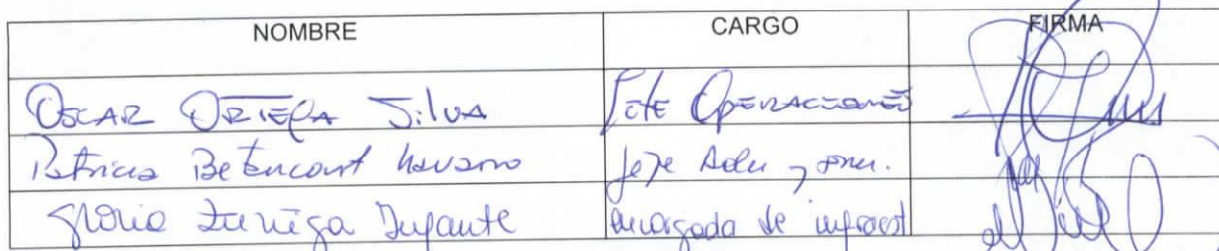 NOMBRE CARGO FIRMA
OSCAR ORTEGA SILVA Jefe OPERACIONES
Patricia Betancourt Navarro Jefe Adm y
Gloria Zuñiga Infante encargada de infraest